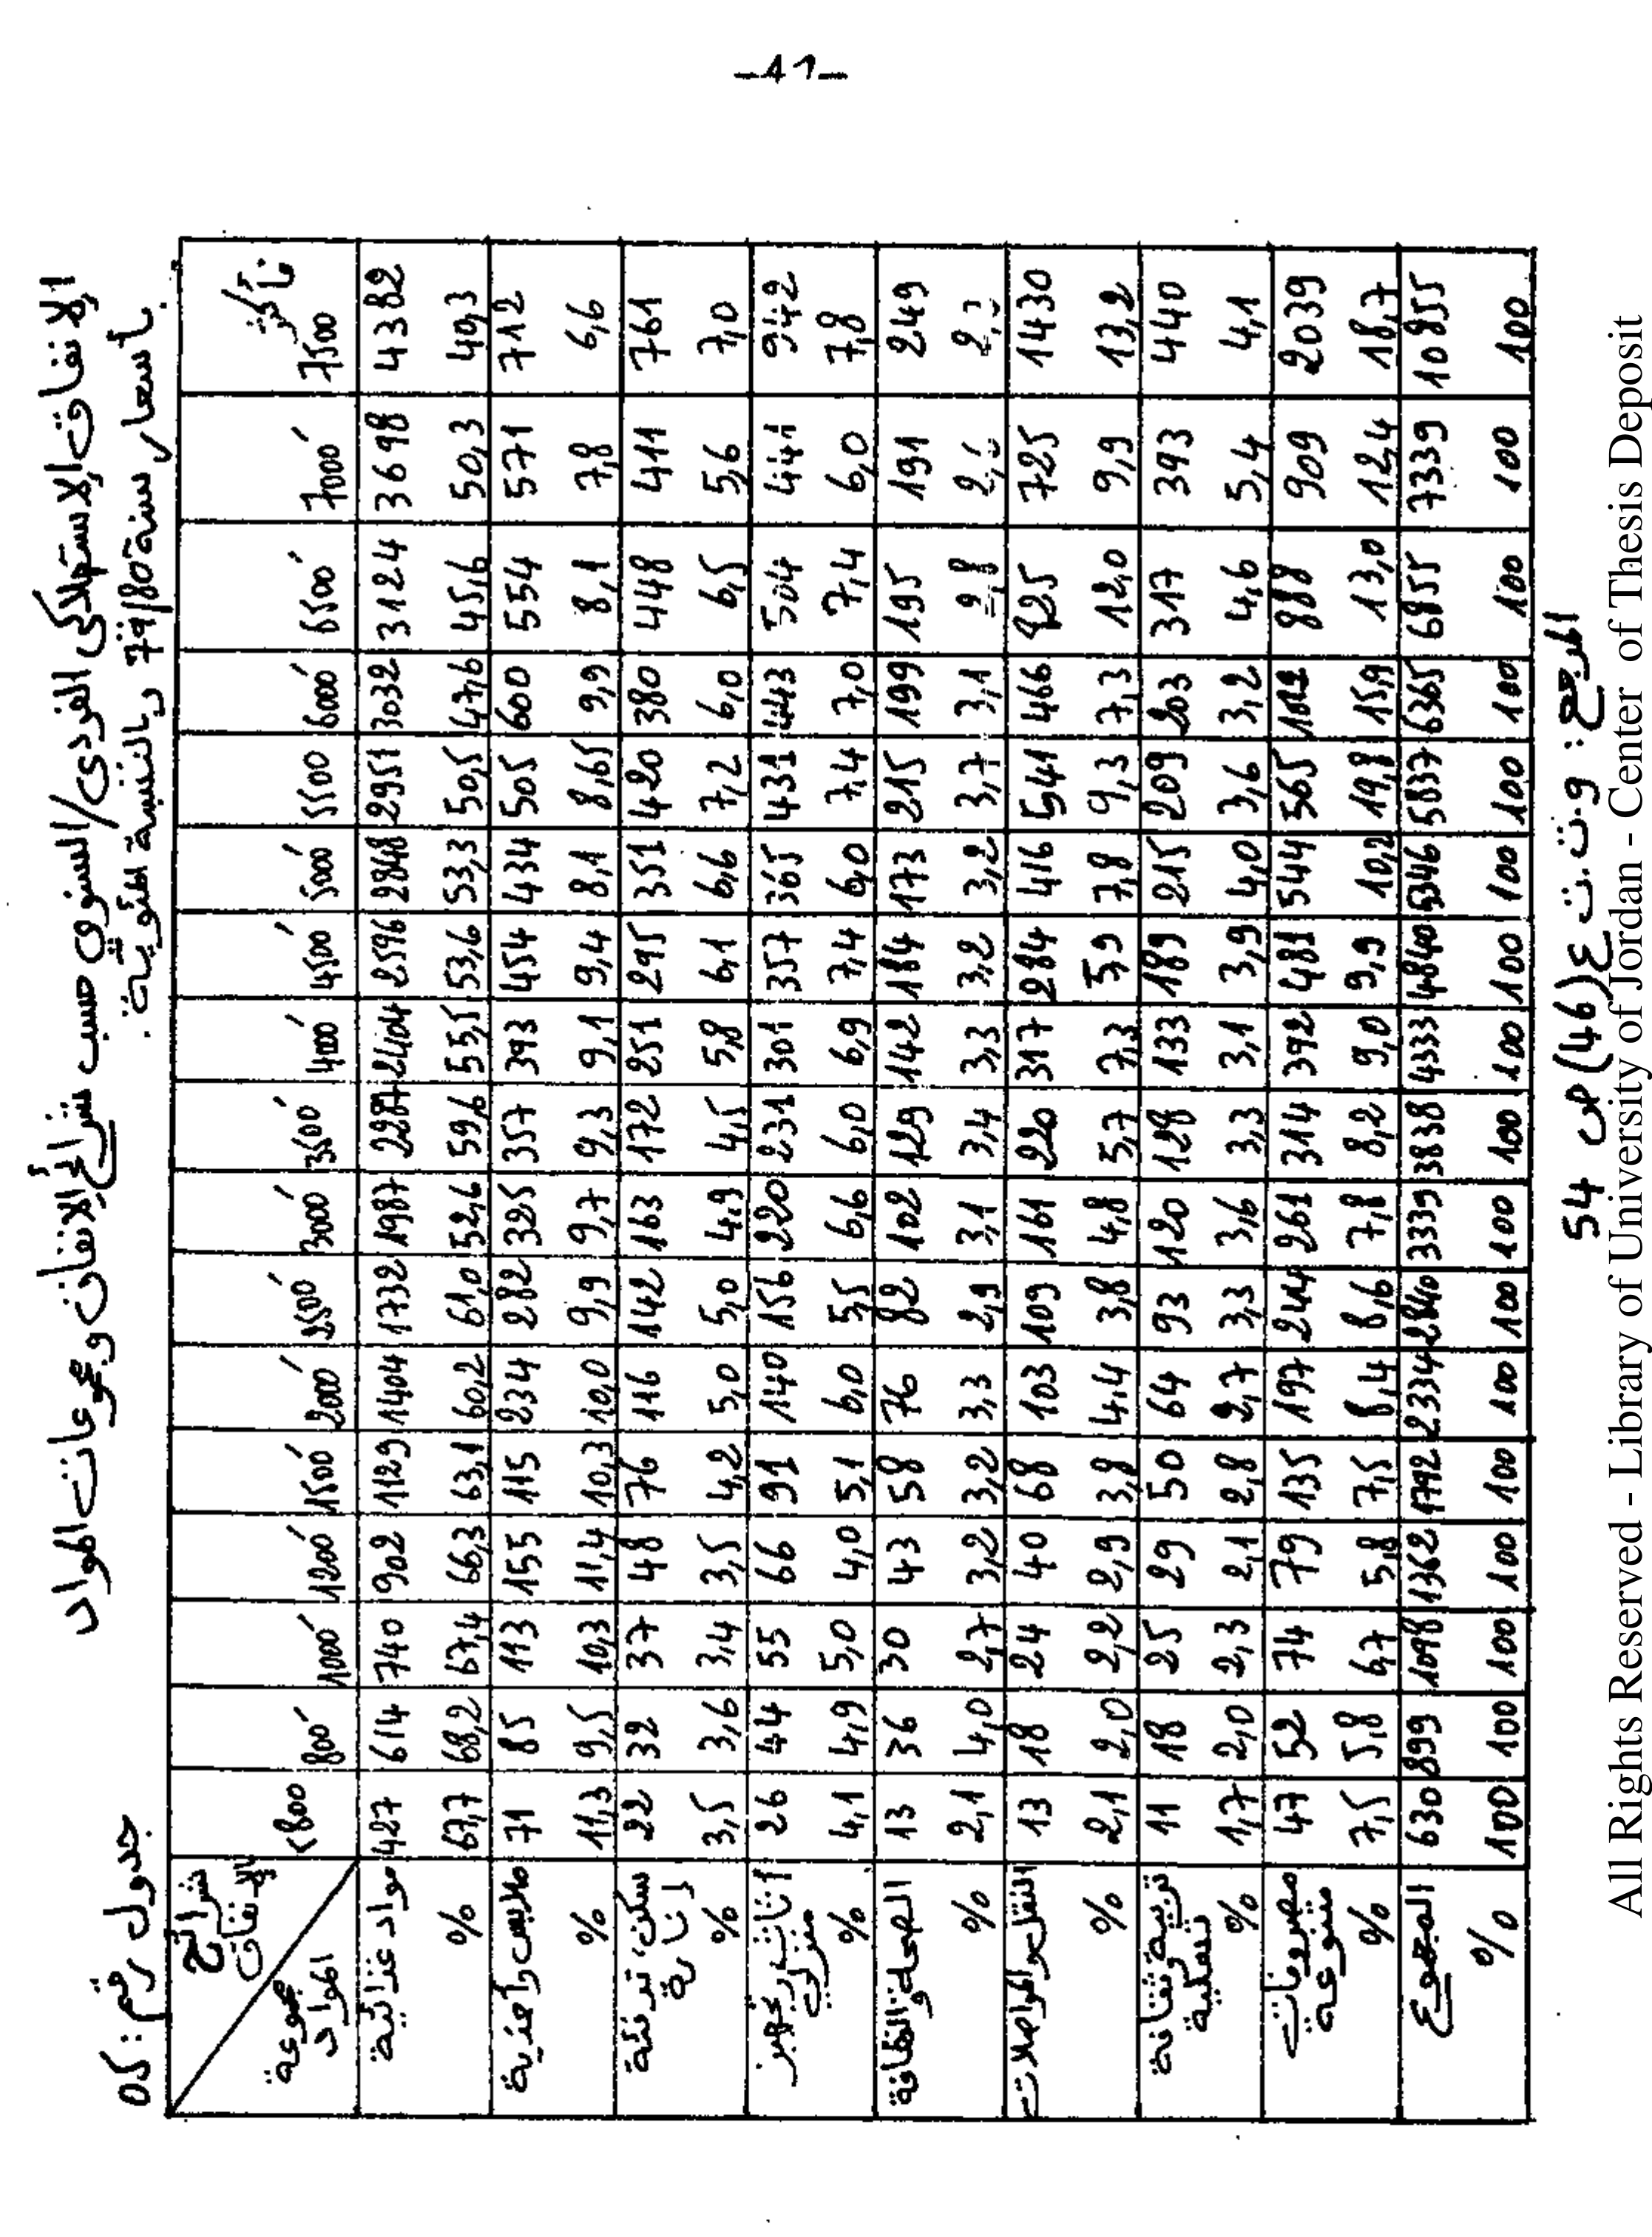 -41-
جدول رقم: 05 الإنفاق الإستهلاكي الفردي/السنوي حسب شرائح الإنفاق ومجموعات المواد
بأسعار سنة 79/80 وبالنسبة المئوية.
شرائح الإنفاق
مجموعة المواد
<800 800 1000 1200 1500 2000 2500 3000 3500 4000 4500 5000 5500 6000 6500 7000 7500 فأكثر
مواد غذائية 427 614 740 902 1129 1404 1732 1987 2287 2404 2596 2848 2951 3032 3124 3698 4382
% 67,7 68,2 67,4 66,3 63,1 60,2 61,0 52,6 59,6 55,5 53,6 53,3 50,5 47,6 45,6 50,3 40,3
ملابس وأحذية 71 85 113 155 115 234 282 325 357 393 454 434 505 600 554 571 712
% 11,3 9,5 10,3 11,4 10,3 10,0 9,9 9,7 9,3 9,1 9,4 8,1 8,65 9,9 8,1 7,8 6,6
سكن، تدفئة إنارة 22 32 37 48 76 116 142 163 172 251 295 351 420 380 448 411 761
% 3,5 3,6 3,4 3,5 4,2 5,0 5,0 4,9 4,5 5,8 6,1 6,6 7,2 6,0 6,5 5,6 7,0
أثاث وتجهيز منزلي 26 44 55 66 91 140 156 220 231 301 357 365 431 443 504 441 942
% 4,1 4,9 5,0 4,0 5,1 6,0 5,5 6,6 6,0 6,9 7,4 6,0 7,4 7,0 7,4 6,0 7,8
الصحة والنظافة 13 36 30 43 58 76 82 102 129 142 184 173 215 199 195 191 249
% 2,1 4,0 2,7 3,2 3,2 3,3 2,9 3,1 3,4 3,3 3,2 3,2 3,7 3,1 2,8
النقل والمواصلات 13 18 24 40 68 103 109 161 220 317 284 416 541 466 825 725 1430
% 2,1 2,0 2,2 2,9 3,8 4,4 3,8 4,8 5,7 7,3 5,9 7,8 9,3 7,3 12,0 9,9 13,2
تربية وثقافة تسلية 11 18 25 29 50 64 93 120 128 133 189 215 209 203 317 393 440
% 1,7 2,0 2,3 2,1 2,8 2,7 3,3 3,6 3,3 3,1 3,9 4,0 3,6 3,2 4,6 5,4 4,1
مصروفات متنوعة 47 52 74 79 135 197 244 261 314 392 481 544 565 888 909 2039
% 7,5 5,8 6,7 5,8 7,5 8,4 8,6 7,8 8,2 9,0 9,9 10,2 19,8 15,9 13,0 12,4 18,7
المجموع 630 899 1098 1362 1792 2334 2840 3339 3838 4333 4840 5346 5837 6365 6855 7339 10855
% 100 100 100 100 100 100 100 100 100 100 100 100 100 100 100 100 100
المرجع: و.ت.ت ع (46) ص 54
All Rights Reserved - Library of University of Jordan - Center of Thesis Deposit